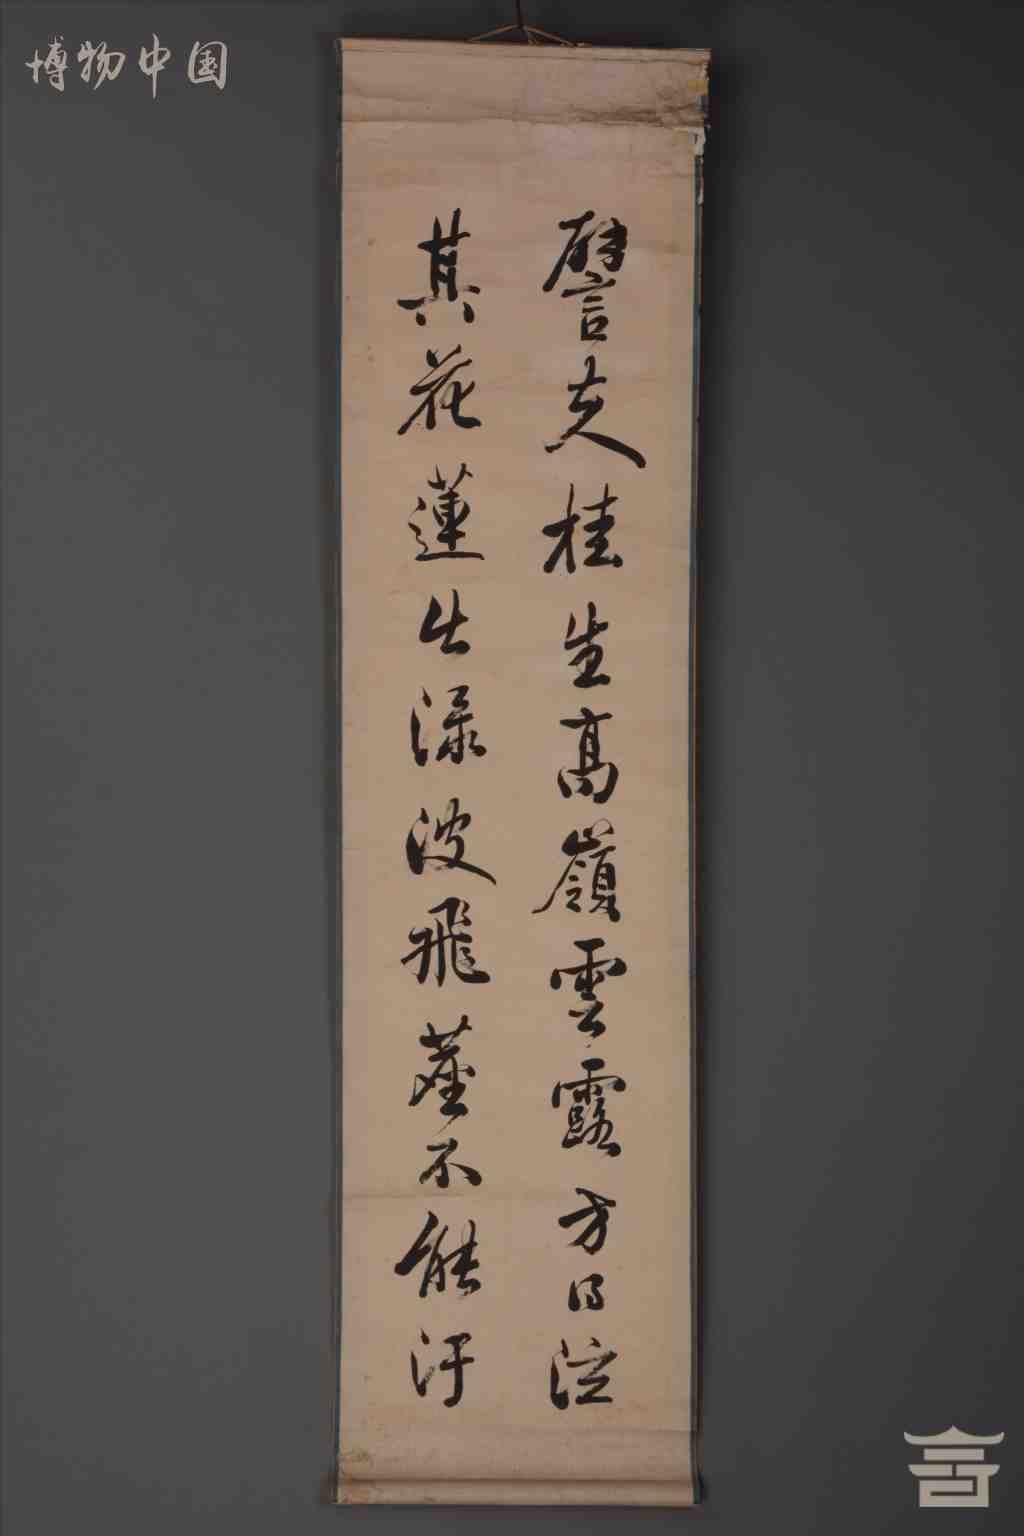 博物中国
譬夫桂生高嶺雲露方得泫
其花蓮出淥波飛塵不能汙